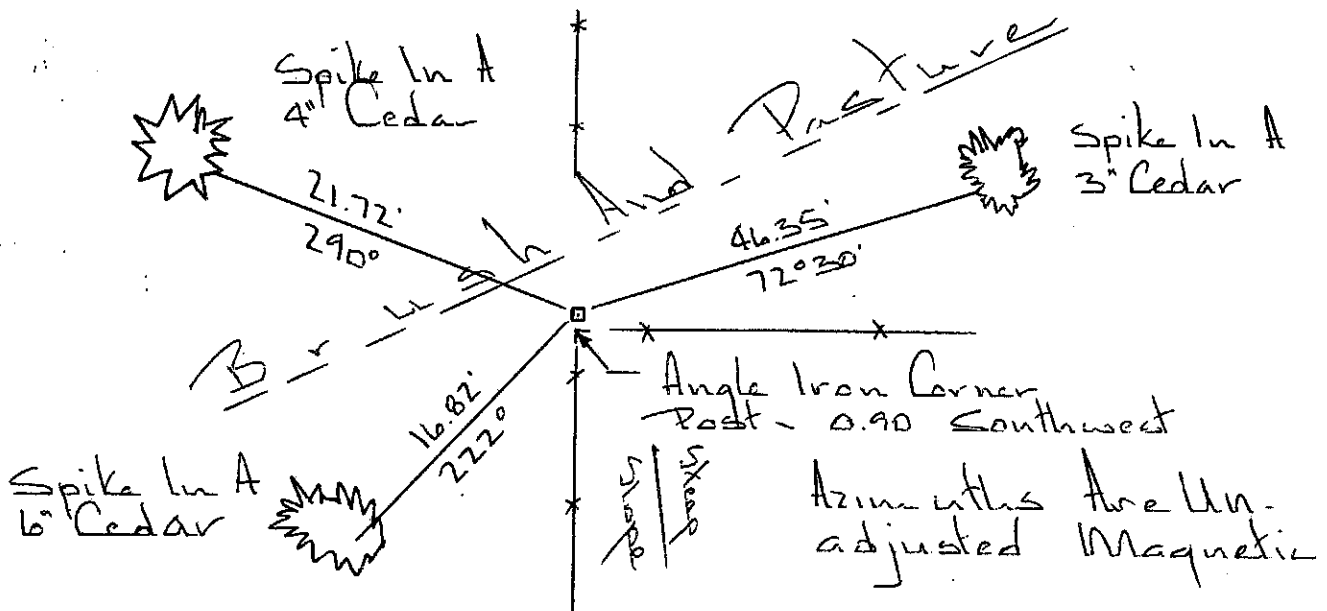 Spike In A
4" Cedar
Brush And Pasture
Spike In A
3" Cedar
21.72'
290°
46.35'
72°30'
Angle Iron Corner
Post - 0.90 Southwest
16.82'
222°
Steep
Slope
Spike In A
6" Cedar
Azimuths Are Un-
adjusted Magnetic